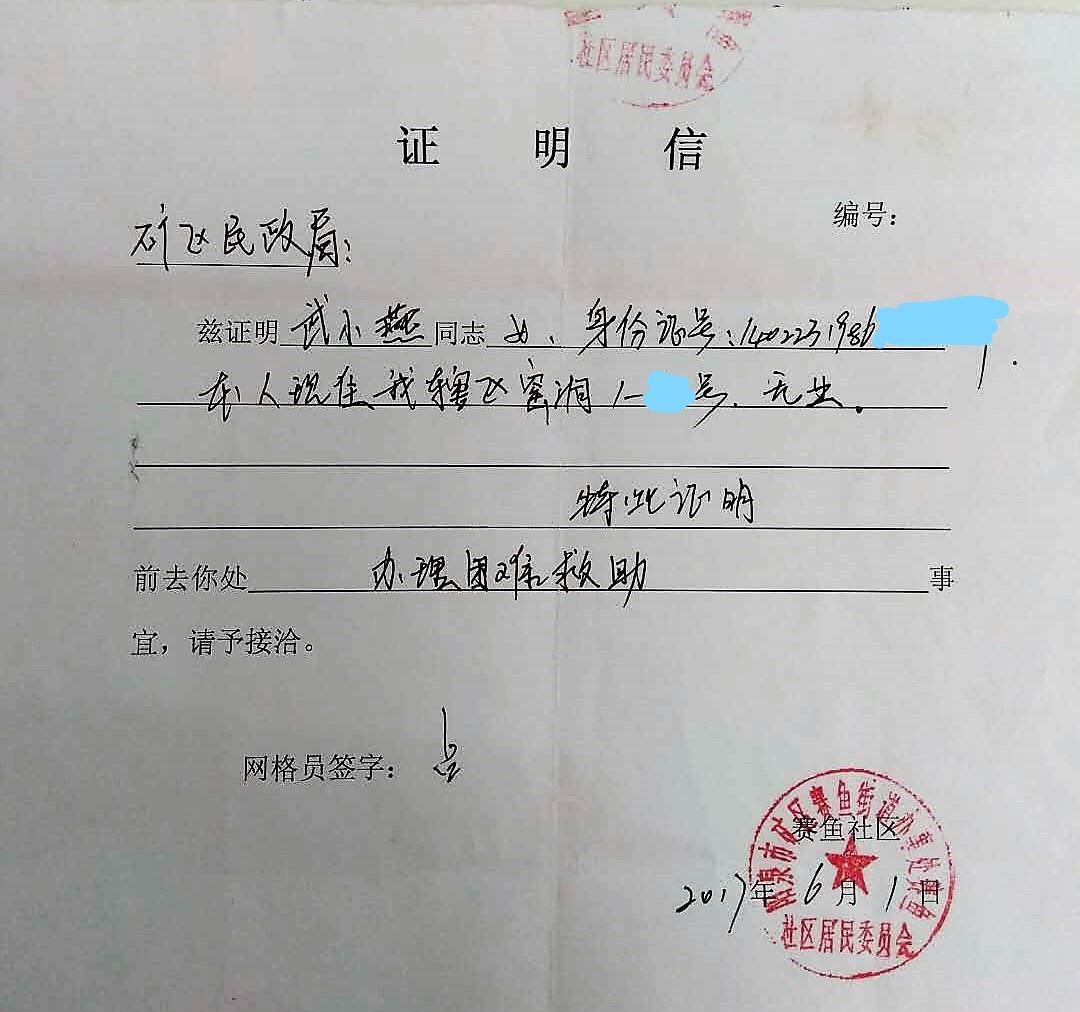 社区居民委员会
证明信
编号：
矿区民政局：
兹证明 武小燕 同志 女、身份证号：1402231986
本人现住我辖区窑洞1-号、无业。
特此证明
前去你处 办理困难救助 事
宜，请予接洽。
网格员签字：
赛鱼社区
2017年6月1日
阳泉市矿区赛鱼街道办事处赛鱼
社区居民委员会